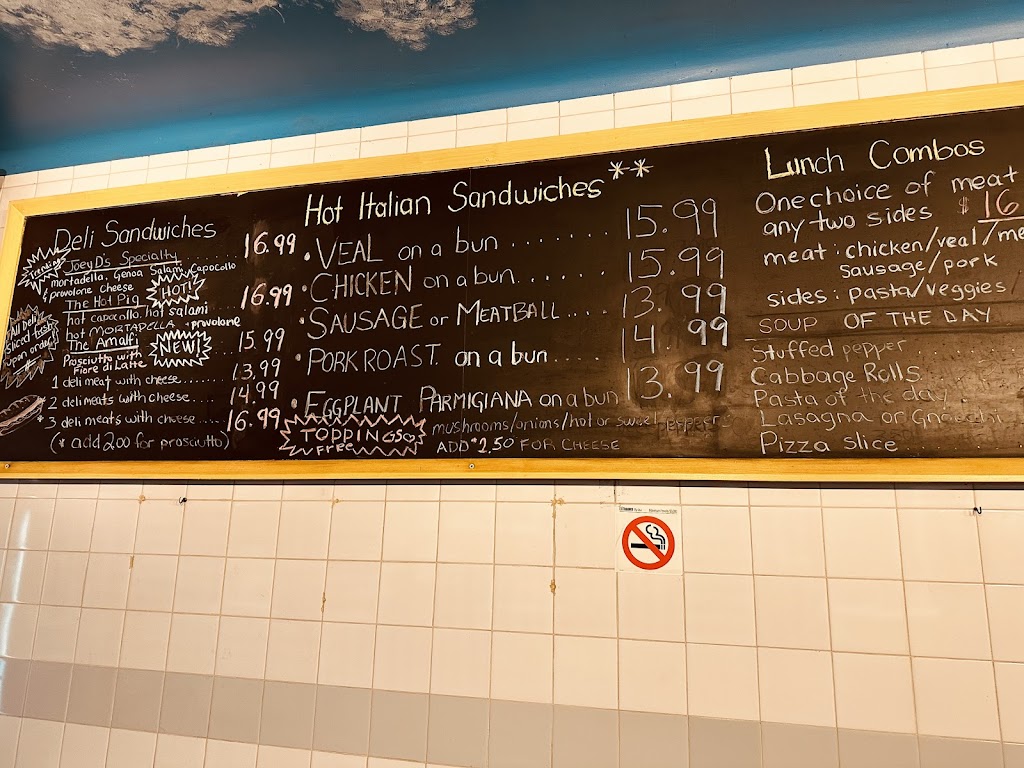 Deli Sandwiches
Trending
Joey D's Specialty 16.99
mortadella, Genoa Salami, Capocollo
provolone cheese
HOT!
The Hot Pig 16.99
hot capocollo, hot salami
hot MORTADELLA • provolone
All Deli
Sliced Fresh
upon order
The Amalfi 15.99
NEW!
Prosciutto with
Fiore di Latte
1 deli meat with cheese....... 13.99
* 2 deli meats with cheese.... 14.99
* 3 deli meats with cheese.... 16.99
(* add 2.00 for prosciutto)
Hot Italian Sandwiches **
• VEAL on a bun ........ 15.99
• CHICKEN on a bun..... 15.99
• SAUSAGE or MEATBALL.... 13.99
• PORK ROAST on a bun.... 14.99
• EGGPLANT PARMIGIANA on a bun 13.99
TOPPINGS
FREE
mushrooms/onions/hot or sweet peppers
ADD $2.50 FOR CHEESE
Lunch Combos
One choice of meat
any two sides $16
meat: chicken/veal/
sausage/pork
sides: pasta/veggies/
SOUP OF THE DAY
Stuffed pepper
Cabbage Rolls
Pasta of the day
Lasagna or Gnocchi
Pizza Slice